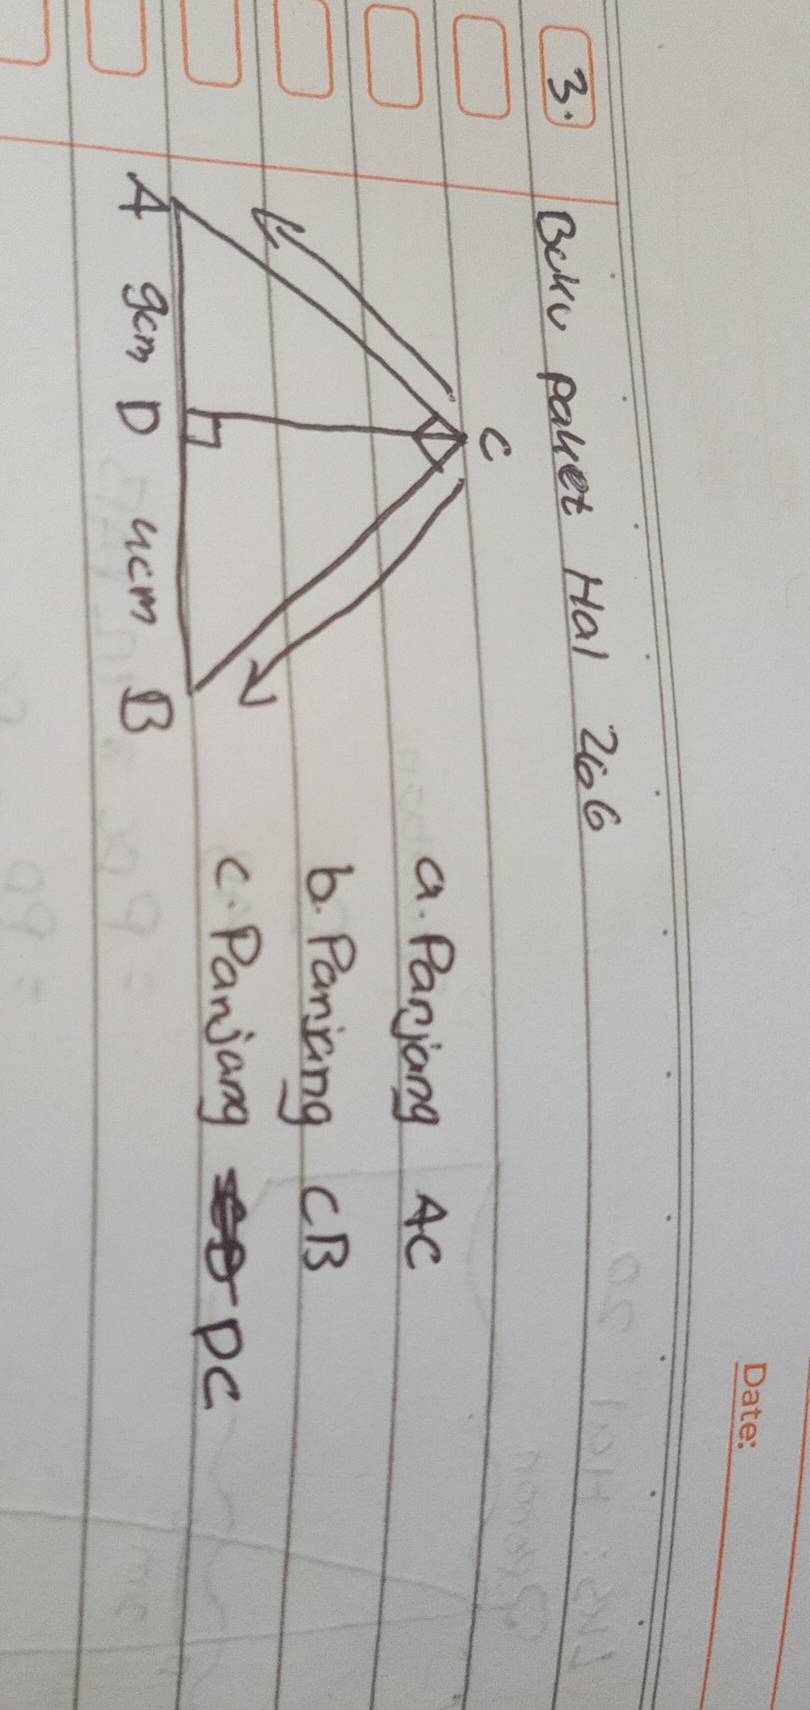 Date:
3. Buku paket Hal 266
C
a. Panjang AC
b. Panjang CB
c. Panjang DC
A 9cm D 4cm B